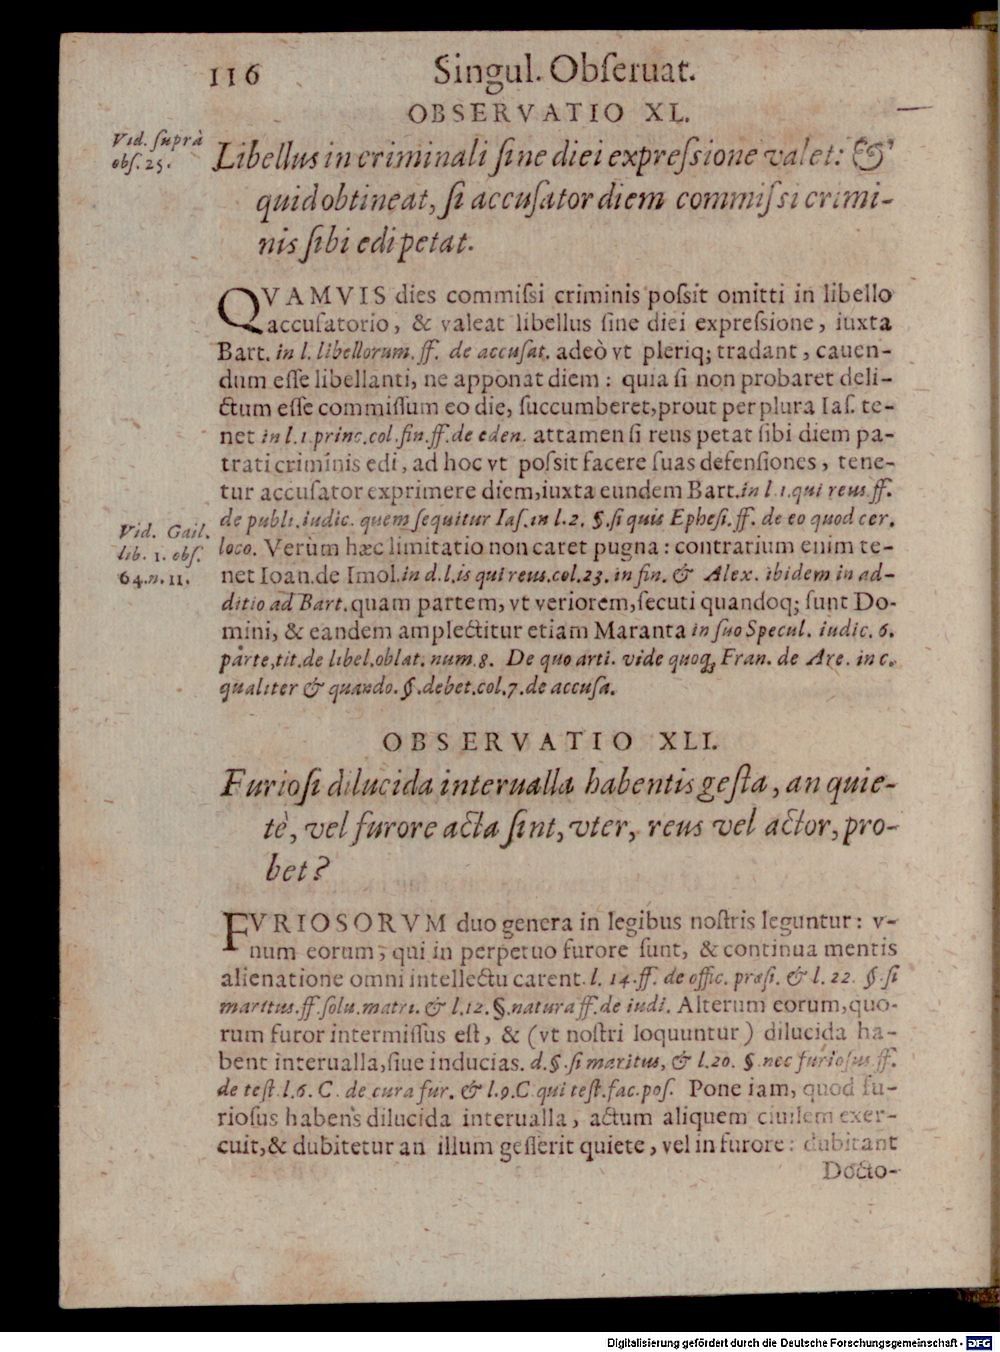 116 Singul. Obſeruat.
OBSERVATIO XL.
Vid. ſuprà
obſ. 25.
Libellus in criminali ſine diei expreſsione valet: &
quid obtineat, ſi accuſator diem commiſsi crimi-
nis ſibi edi petat.
QVAMVIS dies commiſsi criminis poſsit omitti in libello
accuſatorio, & valeat libellus ſine diei expreſsione, iuxta
Bart. in l. libellorum. ff. de accuſat. adeò vt pleriq; tradant, cauen-
dum eſſe libellanti, ne apponat diem: quia ſi non probaret deli-
ctum eſſe commiſſum eo die, ſuccumberet, prout per plura Iaſ. te-
net in l. 1. princ. col. fin. ff. de eden. attamen ſi reus petat ſibi diem pa-
trati criminis edi, ad hoc vt poſsit facere ſuas defenſiones, tene-
tur accuſator exprimere diem, iuxta eundem Bart. in l. 1. qui reus. ff.
de publi. iudic. quem ſequitur Iaſ. in l. 2. §. ſi quis Epheſi. ff. de eo quod cer.
Vid. Gail.
lib. 1. obſ.
64. n. 11.
loco. Verùm hæc limitatio non caret pugna: contrarium enim te-
net Ioan. de Imol. in d. l. is qui reus. col. 23. in fin. & Alex. ibidem in ad-
ditio ad Bart. quam partem, vt veriorem, ſecuti quandoq; ſunt Do-
mini, & eandem amplectitur etiam Maranta in ſuo Specul. iudic. 6.
parte, tit. de libel. oblat. num. 8. De quo arti. vide quoq; Fran. de Are. in c.
qualiter & quando. §. debet. col. 7. de accuſa.
OBSERVATIO XLI.
Furioſi dilucida interualla habentis geſta, an quie-
tè, vel furore acta ſint, vter, reus vel actor, pro-
bet?
FVRIOSORVM duo genera in legibus noſtris leguntur: v-
num eorum, qui in perpetuo furore ſunt, & continua mentis
alienatione omni intellectu carent. l. 14. ff. de offic. præſi. & l. 22. §. ſi
maritus. ff. ſolu. matri. & l. 12. §. natura ff. de iudi. Alterum eorum, quo-
rum furor intermiſſus eſt, & (vt noſtri loquuntur) dilucida ha-
bent interualla, ſiue inducias. d. §. ſi maritus, & l. 20. §. nec furioſus. ff.
de teſt. l. 6. C. de cura fur. & l. 9. C. qui teſt. fac. poſ. Pone iam, quod fu-
rioſus habens dilucida interualla, actum aliquem ciuilem exer-
cuit, & dubitetur an illum geſſerit quiete, vel in furore: dubitant
Docto-
Digitalisierung gefördert durch die Deutsche Forschungsgemeinschaft - DFG